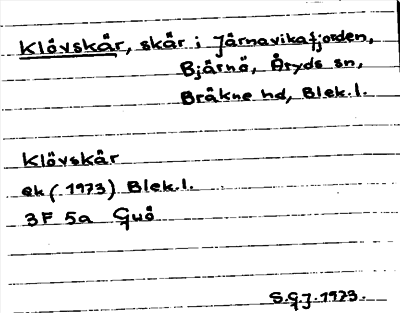 Klövskär, skär i Järnavikafjorden,
Bjärnö, Åryds sn,
Bräkne hd, Blek.l.
Klövskär
ek (1973) Blek.l.
3F 5a Guö
S.G.J. 1973.